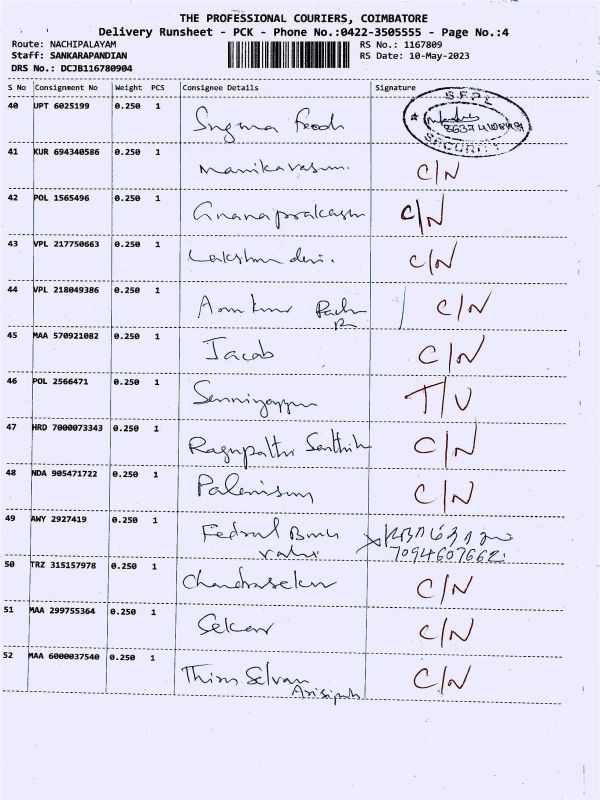 THE PROFESSIONAL COURIERS, COIMBATORE
Delivery Runsheet - PCK - Phone No.:0422-3505555 - Page No.:4
Route: NACHIPALAYAM RS No.: 1167809
Staff: SANKARAPANDIAN RS Date: 10-May-2023
DRS No.: DCJB116780904
S No Consignment No Weight PCS Consignee Details Signature
40 UPT 6025199 0.250 1 Sugma Feeds S.F.P.L SECURITY
41 KUR 694340586 0.250 1 Manikavasum. C/N
42 POL 1565496 0.250 1 Gnanaprakasm C/N
43 VPL 217750663 0.250 1 Lakshmi devi. C/N
44 VPL 218049386 0.250 1 C/N
45 MAA 570921082 0.250 1 Jacob C/N
46 POL 2566471 0.250 1 T/U
47 HRD 7000073343 0.250 1 Ragupathi Senthil C/N
48 NDA 905471722 0.250 1 Palanisamy C/N
49 AWY 2927419 0.250 1 Fedral Bank
7094607662.
50 TRZ 315157978 0.250 1 Chandrasekar C/N
51 MAA 299755364 0.250 1 Sekar C/N
52 MAA 6000037540 0.250 1 Thiru Selvan C/N